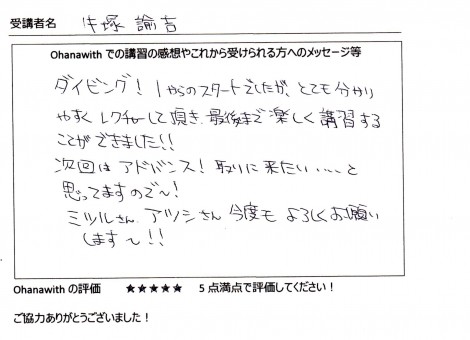 受講者名 牛塚 諭吉
Ohanawith での講習の感想やこれから受けられる方へのメッセージ等
ダイビング! 1からのスタートでしたが、とても分かり
やすく レクチャーして頂き、最後まで楽しく講習する
ことができました!!
次回は アドバンス! 取りに来たい・・・、と
思ってますので〜!
ミツルさん、アツシさん 今度も よろしくお願い
します〜!!
Ohanawith の評価 ★★★★★ 5点満点で評価してください!
ご協力ありがとうございました!